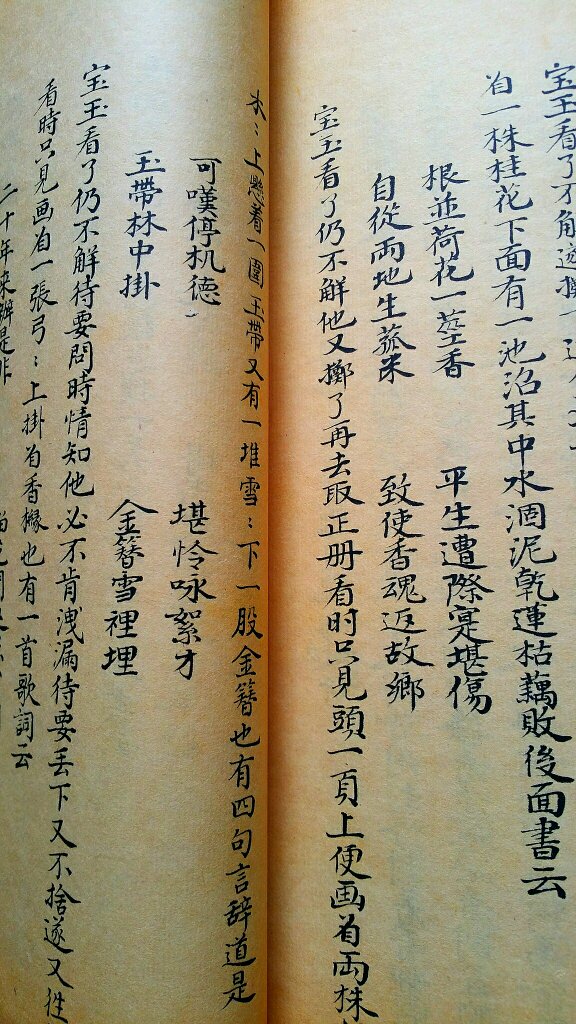 宝玉看了不解遂擲下
有一株桂花下面有一池沼其中水涸泥乾蓮枯藕敗後面書云
根並荷花一莖香　平生遭際寔堪傷
自從兩地生孤木　致使香魂返故鄉
宝玉看了仍不解他又擲了再去取正册看时只见頭一頁上便画着兩株
木：上懸着一圍玉帶又有一堆雪：下一股金簪也有四句言辞道是
可嘆停机德　堪怜咏絮才
玉帶林中掛　金簪雪裡埋
宝玉看了仍不解待要問時情知他必不肯洩漏待要丢下又不捨遂又徃
看時只见画着一張弓：上掛着香櫞也有一首歌詞云
二十年来辨是非